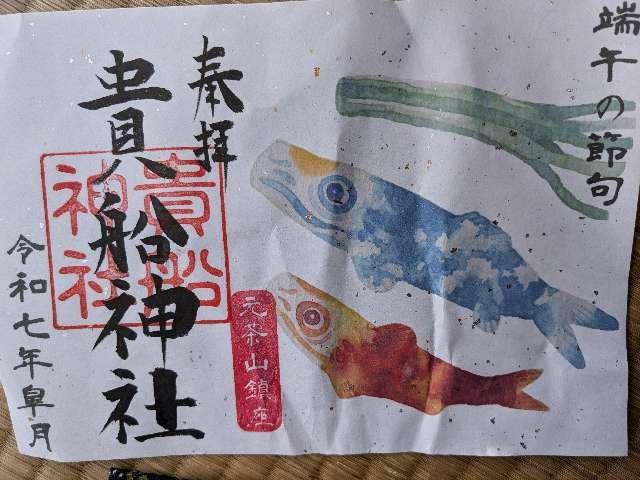 端午の節句
奉拝
貴船神社
貴船
神社
元茶山鎮座
令和七年皐月